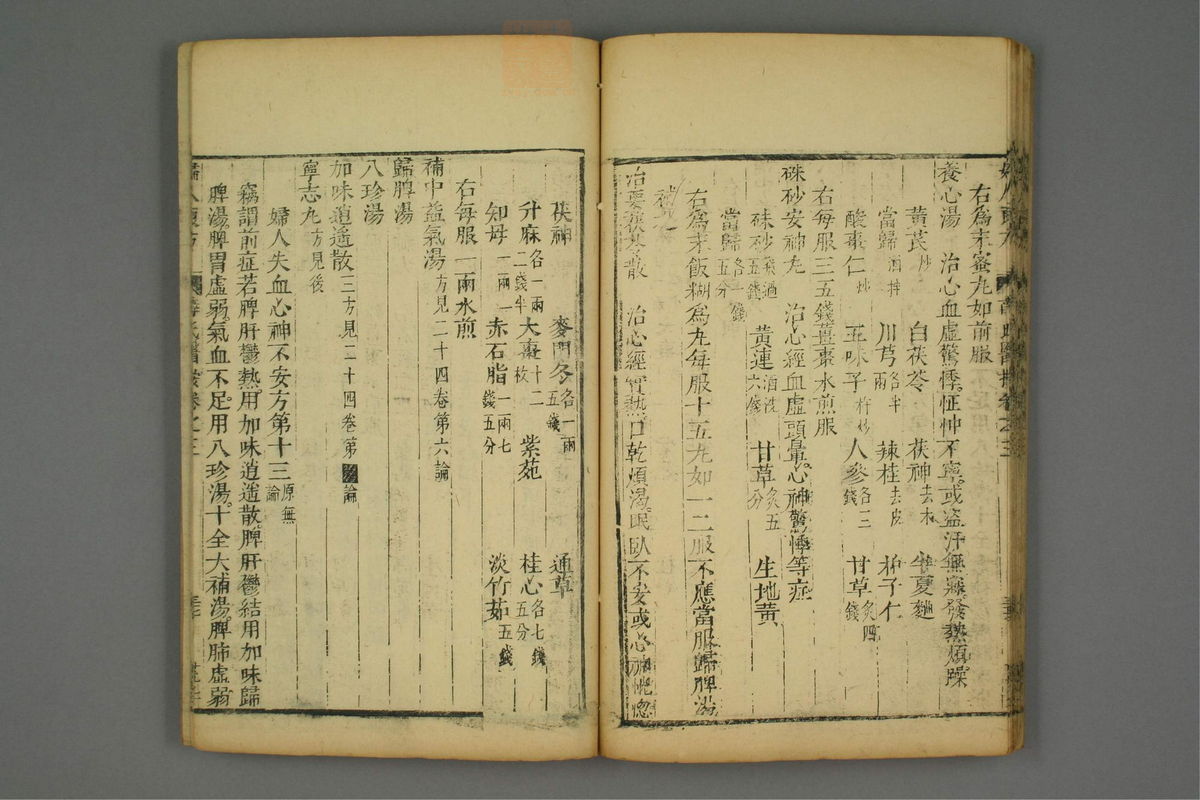 右為末蜜丸如前服
養心湯　治心血虛驚悸怔忡不寧或盜汗無寐發熱煩躁
黃芪炒　白茯苓　茯神去木　半夏麯
當歸酒拌　川芎各半兩　辣桂去皮　柏子仁
酸棗仁炒　五味子杵炒　人參各三錢　甘草炙四錢
右每服三五錢薑棗水煎服
硃砂安神丸　治心經血虛頭暈心神驚悸等症
硃砂飛過五錢　黃連酒洗六錢　甘草炙五分　生地黃
當歸各一錢五分
右為末飯糊為丸每服十五丸如一二服不應當服歸脾湯
補之
治心經實熱口乾煩渴眠臥不安或心神恍惚
茯神　麥門冬各一兩五錢　通草
升麻各一兩二錢半　大棗十二枚　紫菀　桂心各七錢五分
知母一兩一　赤石脂一兩七錢五分　淡竹茹五錢
右每服一兩水煎
補中益氣湯方見二十四卷第六論
歸脾湯
八珍湯
加味逍遙散三方見二十四卷第論
寧志丸方見後
婦人失血心神不安方第十三原無論
竊謂前症若脾肝鬱熱用加味逍遙散脾肝鬱結用加味歸
脾湯脾胃虛弱氣血不足用八珍湯十全大補湯脾肺虛弱